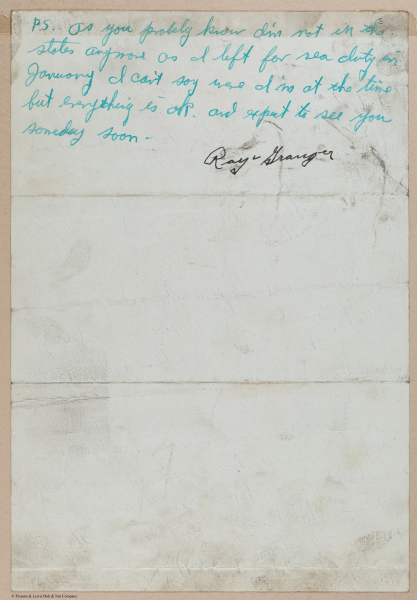 P.S. As you probely know I'm not in the
states anymore as I left for sea duty in
January I can't say were I'm at the time
but everything is ok. and expect to see you
someday soon -
Ray Granger
© Pictures & Lewis Hurb & Nut Company